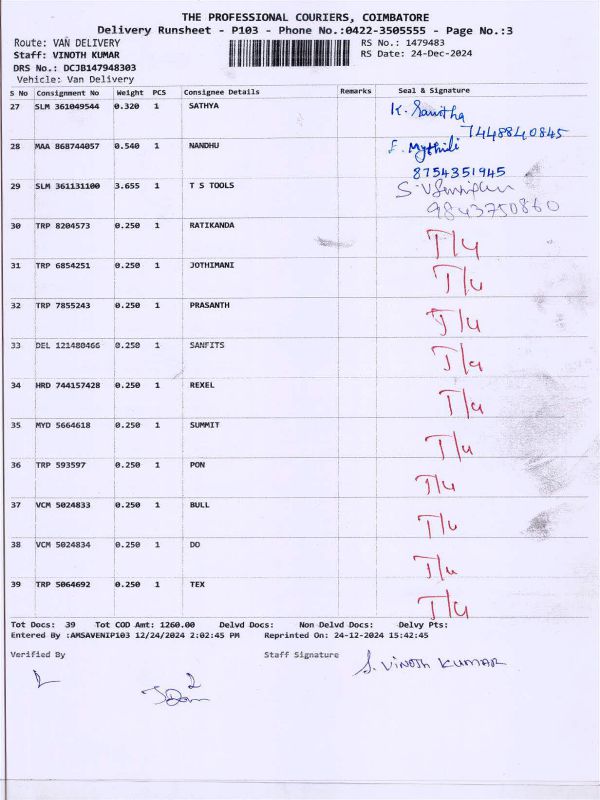 THE PROFESSIONAL COURIERS, COIMBATORE
Delivery Runsheet - P103 - Phone No.:0422-3505555 - Page No.:3
Route: VAN DELIVERY
RS No.: 1479483
Staff: VINOTH KUMAR
RS Date: 24-Dec-2024
DRS No.: DCJB147948303
Vehicle: Van Delivery
S No Consignment No Weight PCS Consignee Details Remarks Seal & Signature
27 SLM 361049544 0.320 1 SATHYA K. Sanitha
7448840845
28 MAA 868744057 0.540 1 NANDHU Mythili
8754351945
29 SLM 361131100 3.655 1 T S TOOLS
9843750860
30 TRP 8204573 0.250 1 RATIKANDA T/4
31 TRP 6854251 0.250 1 JOTHIMANI T/4
32 TRP 7855243 0.250 1 PRASANTH T/4
33 DEL 121480466 0.250 1 SANFITS T/4
34 HRD 744157428 0.250 1 REXEL T/4
35 MYD 5664618 0.250 1 SUMMIT T/4
36 TRP 593597 0.250 1 PON T/4
37 VCM 5024833 0.250 1 BULL T/4
38 VCM 5024834 0.250 1 DO T/4
39 TRP 5064692 0.250 1 TEX T/4
Tot Docs: 39 Tot COD Amt: 1260.00 Delvd Docs: Non Delvd Docs: Delvy Pts:
Entered By :AMSAVENIP103 12/24/2024 2:02:45 PM Reprinted On: 24-12-2024 15:42:45
Verified By Staff Signature S. VINOTH KUMAR